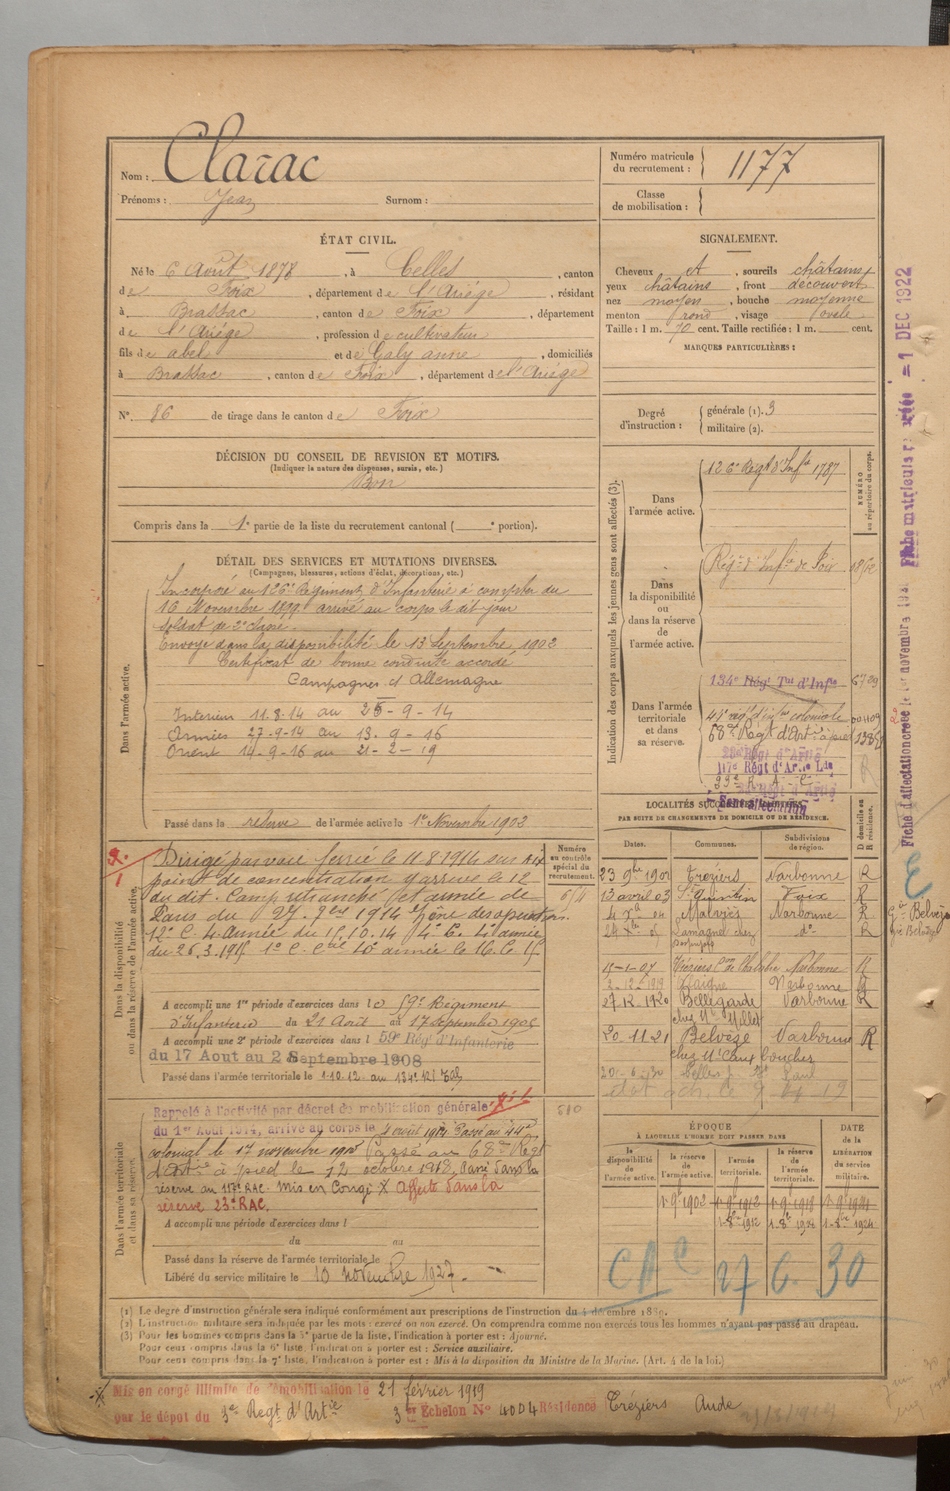 Nom : Clarac
Prénoms : Jean Surnom :
Numéro matricule du recrutement : 1177
Classe de mobilisation :
ÉTAT CIVIL.
Né le 6 Août 1878, à Celles, canton
de Foix, département de l'Ariège, résidant
à Brassac, canton de Foix, département
de l'Ariège, profession de cultivateur
fils de abel et de Galy anne, domiciliés
à Brassac, canton de Foix, département de l'Ariège
N° 86 de tirage dans le canton de Foix
SIGNALEMENT.
Cheveux et, sourcils châtains
yeux châtains, front découvert
nez moyen, bouche moyenne
menton rond, visage ovale
Taille : 1 m. 70 cent. Taille rectifiée : 1 m. cent.
MARQUES PARTICULIÈRES :
Degré d'instruction : générale (1). 3
militaire (2).
DÉCISION DU CONSEIL DE REVISION ET MOTIFS.
(Indiquer la nature des dispenses, sursis, etc.)
Bon
Compris dans la 1e partie de la liste du recrutement cantonal ( e portion).
DÉTAIL DES SERVICES ET MUTATIONS DIVERSES.
(Campagnes, blessures, actions d'éclat, décorations, etc.)
Dans l'armée active.
Incorporé au 126e Régiment d'Infanterie à compter du
16 Novembre 1899 arrivé au corps le dit jour
Soldat de 2e classe.
Envoyé dans la disponibilité le 13 Septembre 1902
Certificat de bonne conduite accordé
Campagnes d'Allemagne
Intérieur 11-8-14 au 26-9-14
Armées 27-9-14 au 13-9-16
Orient 14-9-16 au 21-2-19
Passé dans la réserve de l'armée active le 1er Novembre 1902
Indication des corps auxquels les jeunes gens sont affectés (3).
NUMÉRO au répertoire du corps.
Dans l'armée active.
126e Regt d'Infie 1787
Dans la disponibilité ou dans la réserve de l'armée active.
Régt d'Infie de Foix
Dans l'armée territoriale et dans sa réserve.
134e Régt Tal d'Infie 6729
41e regt d'infie coloniale
68e Régt d'Art. à pied
117e Régt d'Arie Lde
LOCALITÉS SUCCESSIVES HABITÉES
PAR SUITE DE CHANGEMENTS DE DOMICILE OU DE RÉSIDENCE.
Dates. Communes. Subdivisions de région. D domicile ou R résidence.
23 9bre 1902 Tréziers Narbonne R
13 avril 03 St Quentin Foix R
4 Xbre 04 Malviès Narbonne R
15-1-07 Narbonne R
2-12-1919 Narbonne R
27.12.1920 Bellegarde Narbonne R
chez Mr Millet
20 11 21 Belvèze Narbonne R
Dans la disponibilité ou dans la réserve de l'armée active.
Numéro au contrôle spécial du recrutement.
Dirigé par voie ferrée le 11.8.1914 sur
point de concentration y arrivé le 12
du dit. Camp retranché et armée de
Paris du 27. 7bre 1914 zône des opérations.
12e C. 4e Année du 15.10.14 4e C. 4e année
A accompli une 1re période d'exercices dans le 59e Régiment
d'Infanterie du 21 Août au 17 septembre 1905
A accompli une 2e période d'exercices dans l 59e Régt d'Infanterie
du 17 Aout au 2 Septembre 1908
Passé dans l'armée territoriale le 1-10-12 au 134e RI Tal
Dans l'armée territoriale et dans sa réserve.
Rappelé à l'activité par décret de mobilisation générale
du 1er Août 1914, arrivé au corps le 4 août 1914 Passé au 44e
colonial le 17 novembre 1915 Passé au 68e Regt
d'Artie à pied le 12 octobre 1918, Passé dans la
réserve au 117e RAC. Mis en Congé X Affecté dans la
réserve 23e RAC.
A accompli une période d'exercices dans l
du au
Passé dans la réserve de l'armée territoriale le
Libéré du service militaire le 10 novembre 1927.
ÉPOQUE
À LAQUELLE L'HOMME DOIT PASSER DANS
la disponibilité de l'armée active. la réserve de l'armée active. l'armée territoriale. la réserve de l'armée territoriale.
DATE de la LIBÉRATION du service militaire.
1-9bre 1902 1-9bre 1912 1-9bre 1918 1-9bre 1924
CAC 27 6. 30
(1) Le degré d'instruction générale sera indiqué conformément aux prescriptions de l'instruction du 4 décembre 1889.
(2) L'instruction militaire sera indiquée par les mots : exercé ou non exercé. On comprendra comme non exercés tous les hommes n'ayant pas passé au drapeau.
(3) Pour les hommes compris dans la 5e partie de la liste, l'indication à porter est : Ajourné.
Pour ceux compris dans la 6e liste, l'indication à porter est : Service auxiliaire.
Pour ceux compris dans la 7e liste, l'indication à porter est : Mis à la disposition du Ministre de la Marine. (Art. 4 de la loi.)
Mis en congé illimité de démobilisation le 21 février 1919
par le dépôt du 3e Regt d'Artie 3e Echelon No 4004 Résidence Tréziers Aude